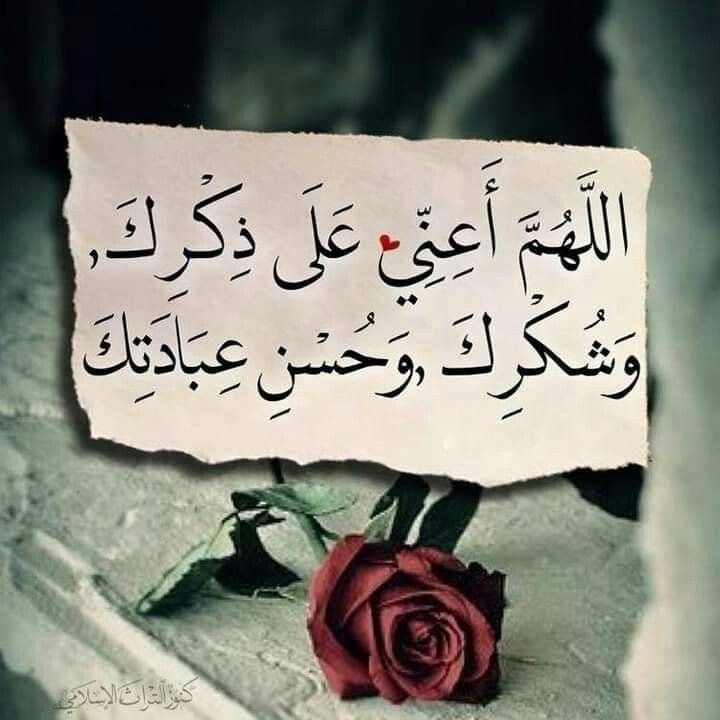 اللَّهُمَّ أَعِنِّي عَلَى ذِكْرِكَ,
وَشُكْرِكَ ,وَحُسْنِ عِبَادَتِكَ
كنوز التراث الإسلامي